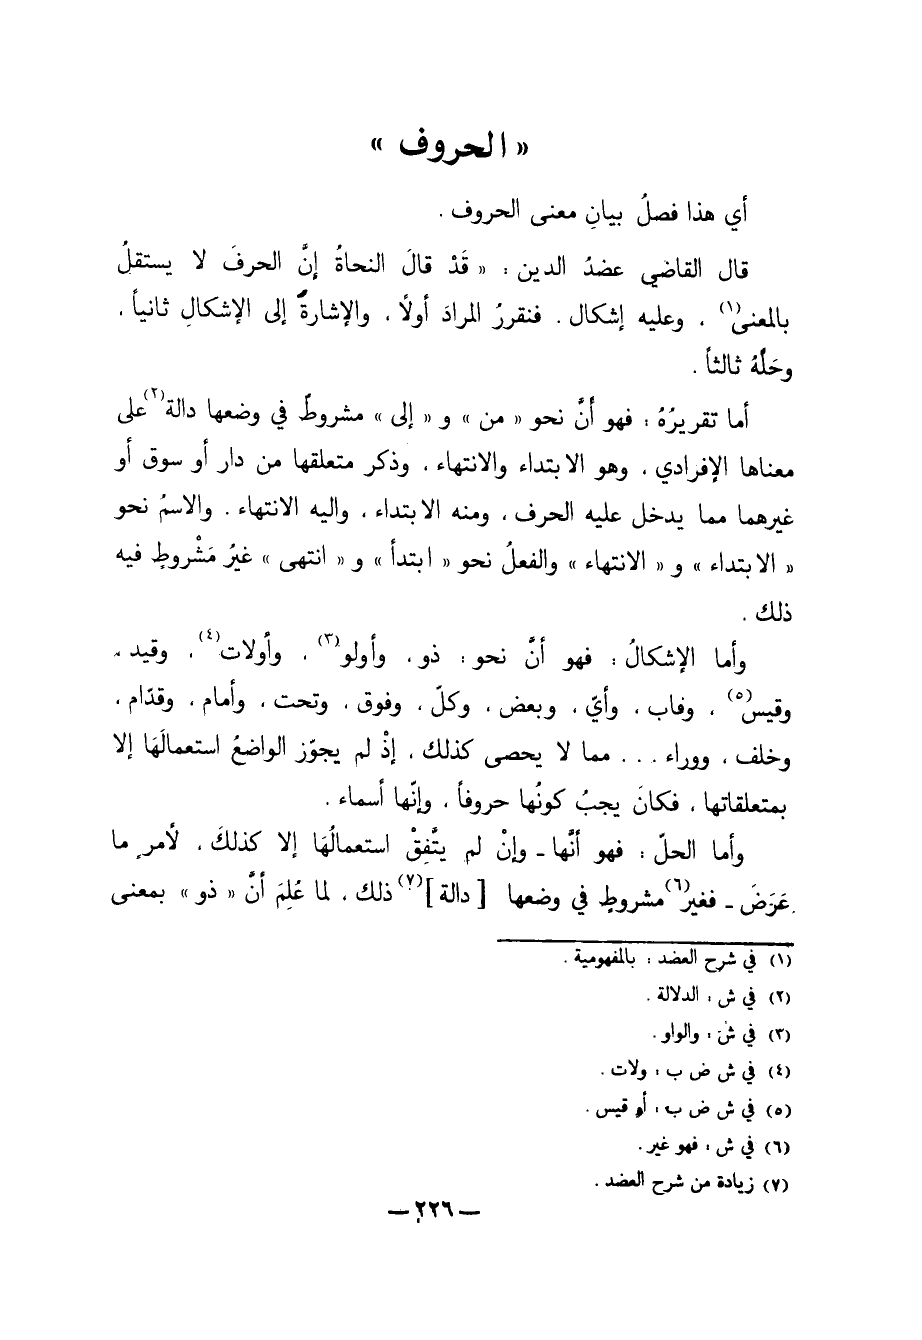 « الحروف »
أي هذا فصلُ بيانِ معنى الحروف .
قال القاضي عضدُ الدين : « قَدْ قالَ النحاةُ إنَّ الحرفَ لا يستقلُ
بالمعنى(١) ، وعليه إشكال . فنقررُ المرادَ أولًا ، والإشارةُ إلى الإشكالِ ثانياً ،
وحَلَّهُ ثالثاً .
أما تقريرُهُ : فهو أنَّ نحو « من » و « إلى » مشروطٌ في وضعها دالة(٢) على
معناها الإفرادي ، وهو الابتداء والانتهاء ، وذكر متعلقها من دار أو سوق أو
غيرهما مما يدخل عليه الحرف ، ومنه الابتداء ، واليه الانتهاء . والاسمُ نحو
« الابتداء » و « الانتهاء » والفعلُ نحو « ابتدأ » و « انتهى » غيرُ مَشْروطٍ فيه
ذلك .
وأما الإشكالُ : فهو أنَّ نحو : ذو ، وأولو(٣) ، وأولات(٤) ، وقيد ،
وقيس(٥) ، وفاب ، وأيّ ، وبعض ، وكلّ ، وفوق ، وتحت ، وأمام ، وقدّام ،
وخلف ، ووراء . . . مما لا يحصى كذلك ، إذْ لم يجوّز الواضعُ استعمالَهَا إلا
بمتعلقاتها ، فكانَ يجبُ كونُها حروفاً ، وإنّها أسماء .
وأما الحلّ : فهو أنَّها ـ وإنْ لم يتَّفِقْ استعمالُهَا إلا كذلكَ ، لأمرٍ ما
عَرَضَ ـ فغير(٦) مشروطٍ في وضعها [ دالة ](٧) ذلك ، لما عُلِمَ أنَّ « ذو » بمعنى
(١) في شرح العضد : بالمفهومية .
(٢) في ش : الدلالة .
(٣) في ش : والواو .
(٤) في ش ض ب : ولات .
(٥) في ش ض ب : أو قيس .
(٦) في ش : فهو غير .
(٧) زيادة من شرح العضد .
— ٢٢٦ —